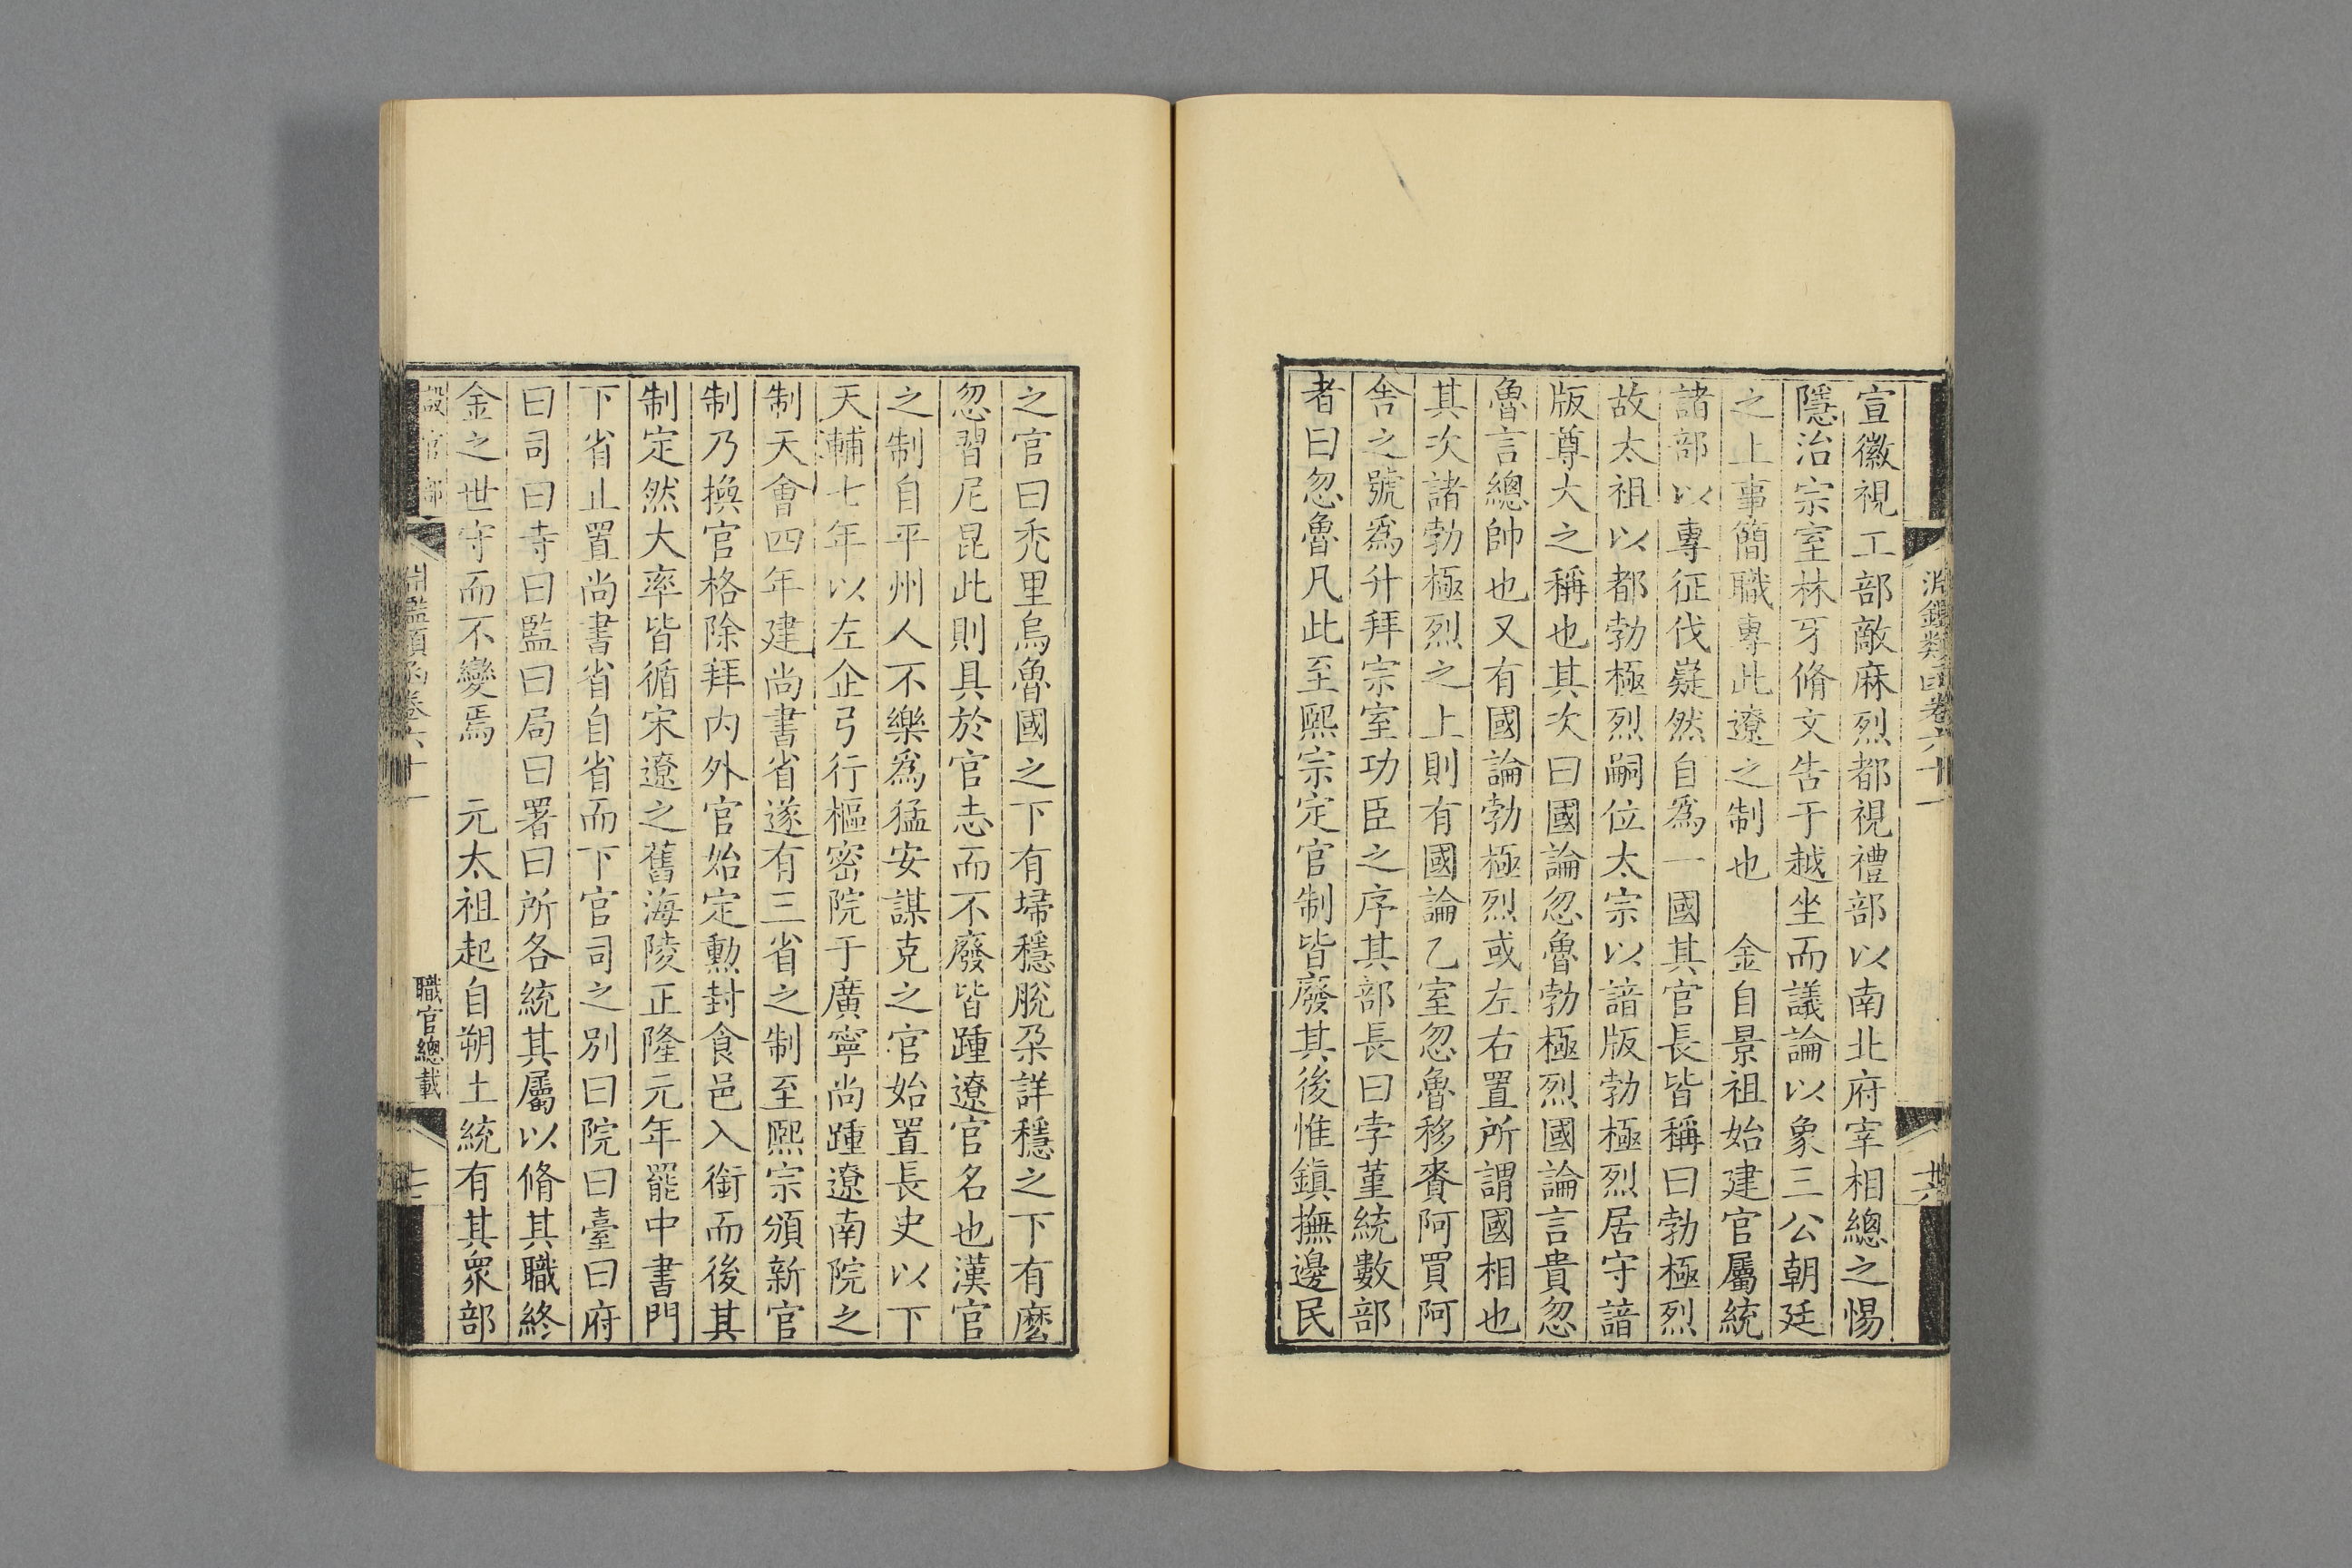 淵鑑類函卷六十一
宣徽視工部敵麻烈都視禮部以南北府宰相總之惕
隱治宗室林牙脩文告于越坐而議論以象三公朝廷
之上事簡職專此遼之制也　金自景祖始建官屬統
諸部以專征伐嶷然自為一國其官長皆稱曰勃極烈
故太祖以都勃極烈嗣位太宗以諳版勃極烈居守諳
版尊大之稱也其次曰國論忽魯勃極烈國論言貴忽
魯言總帥也又有國論勃極烈或左右置所謂國相也
其次諸勃極烈之上則有國論乙室忽魯移賚阿買阿
舍之號為升拜宗室功臣之序其部長曰孛堇統數部
者曰忽魯凡此至熙宗定官制皆廢其後惟鎮撫邊民
之官曰禿里烏魯國之下有埽穩脫朶詳穩之下有麽
忽習尼昆此則具於官志而不廢皆踵遼官名也漢官
之制自平州人不樂為猛安謀克之官始置長史以下
天輔七年以左企弓行樞密院于廣寧尚踵遼南院之
制天會四年建尚書省遂有三省之制至熙宗頒新官
制乃換官格除拜內外官始定勳封食邑入銜而後其
制定然大率皆循宋遼之舊海陵正隆元年罷中書門
下省止置尚書省自省而下官司之別曰院曰臺曰府
曰司曰寺曰監曰局曰署曰所各統其屬以脩其職終
金之世守而不變焉　元太祖起自朔土統有其眾部
設官部　淵鑑類函卷六十一　職官總載